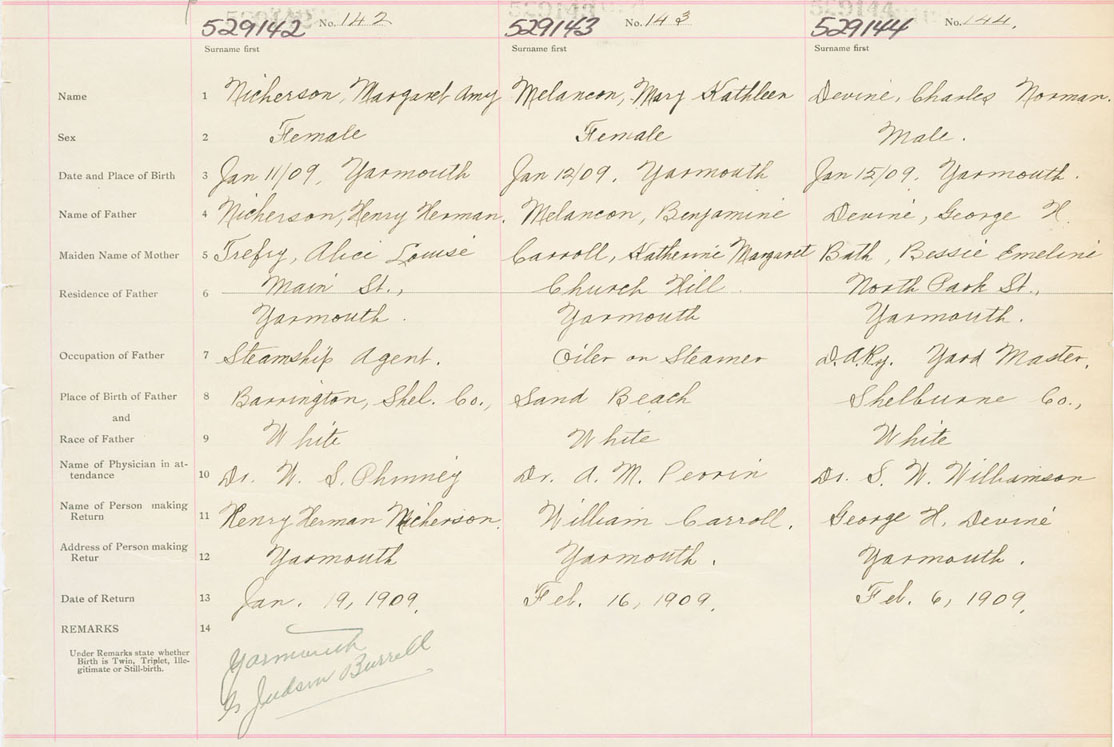 529142 No. 142 529143 No. 143 529144 No. 144.
Surname first Surname first Surname first
Name 1 Nickerson, Margaret Amy Melancon, Mary Kathleen Devine, Charles Norman.
Sex 2 Female Female Male.
Date and Place of Birth 3 Jan 11/09, Yarmouth Jan 12/09, Yarmouth Jan 15/09, Yarmouth.
Name of Father 4 Nickerson, Henry Herman. Melancon, Benjamine Devine, George H.
Maiden Name of Mother 5 Trefry, Alice Louise Carroll, Katherine Margaret Bath, Bessie Emeline
Residence of Father 6 Main St., Church Hill North Park St.,
Yarmouth. Yarmouth Yarmouth.
Occupation of Father 7 Steamship Agent. Oiler on Steamer D.A.Ry. Yard Master.
Place of Birth of Father 8 Barrington, Shel. Co., Sand Beach Shelburne Co.,
and
Race of Father 9 White White White
Name of Physician in at-
tendance 10 Dr. W. S. Phinney Dr. A. M. Perrin Dr. S. W. Williamson
Name of Person making
Return 11 Henry Herman Nickerson. William Carroll. George H. Devine
Address of Person making
Retur 12 Yarmouth Yarmouth. Yarmouth.
Date of Return 13 Jan. 19, 1909. Feb. 16, 1909. Feb. 6, 1909.
REMARKS 14
Under Remarks state whether
Birth is Twin, Triplet, Ille-
gitimate or Still-birth.
Yarmouth
G Judson Burrell